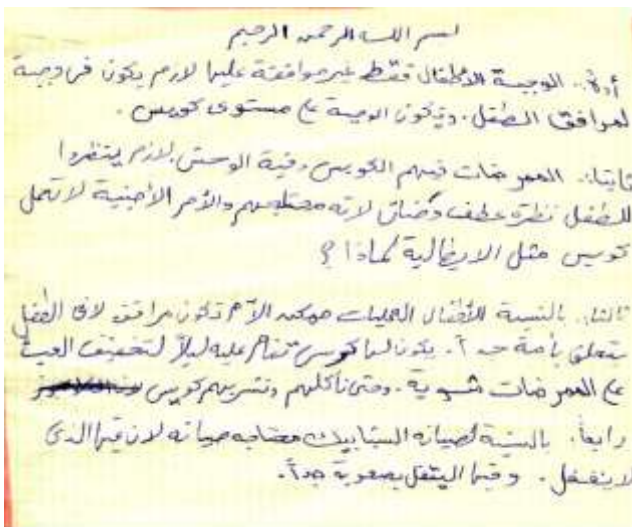 بسم الله الرحمن الرحيم
أولاً:. الوجبة الأطفال فقط غير موافقة عليها لازم يكون في وجبة
لمرافق الطفل. وتكون الوجبة ع مستوى كويس.
ثانيا:. الممرضات فيهم الكويس وفية الوحش بلازم ينظروا
للطفل نظرة عطف وحنان لانه محتاجهم والأمر الأجنبية لا تعمل
كويس مثل الايطالية لماذا ؟
ثالثا:. بالنسبة للأطفال العمليات ممكن الأم تكون مرافقه لان الطفل
يتعلق بأمة جداً. يكون لها كرسي تنام عليه ليلاً لتخفيف العبء
ع الممرضات شوية. وحتى تأكلهم وتشربهم كويس
رابعاً. بالنسبة لصيانه الشبابيك محتاجه صيانه لان فيها الذي
لا ينقفل. وفيها اليتقفل بصعوبة جداً.